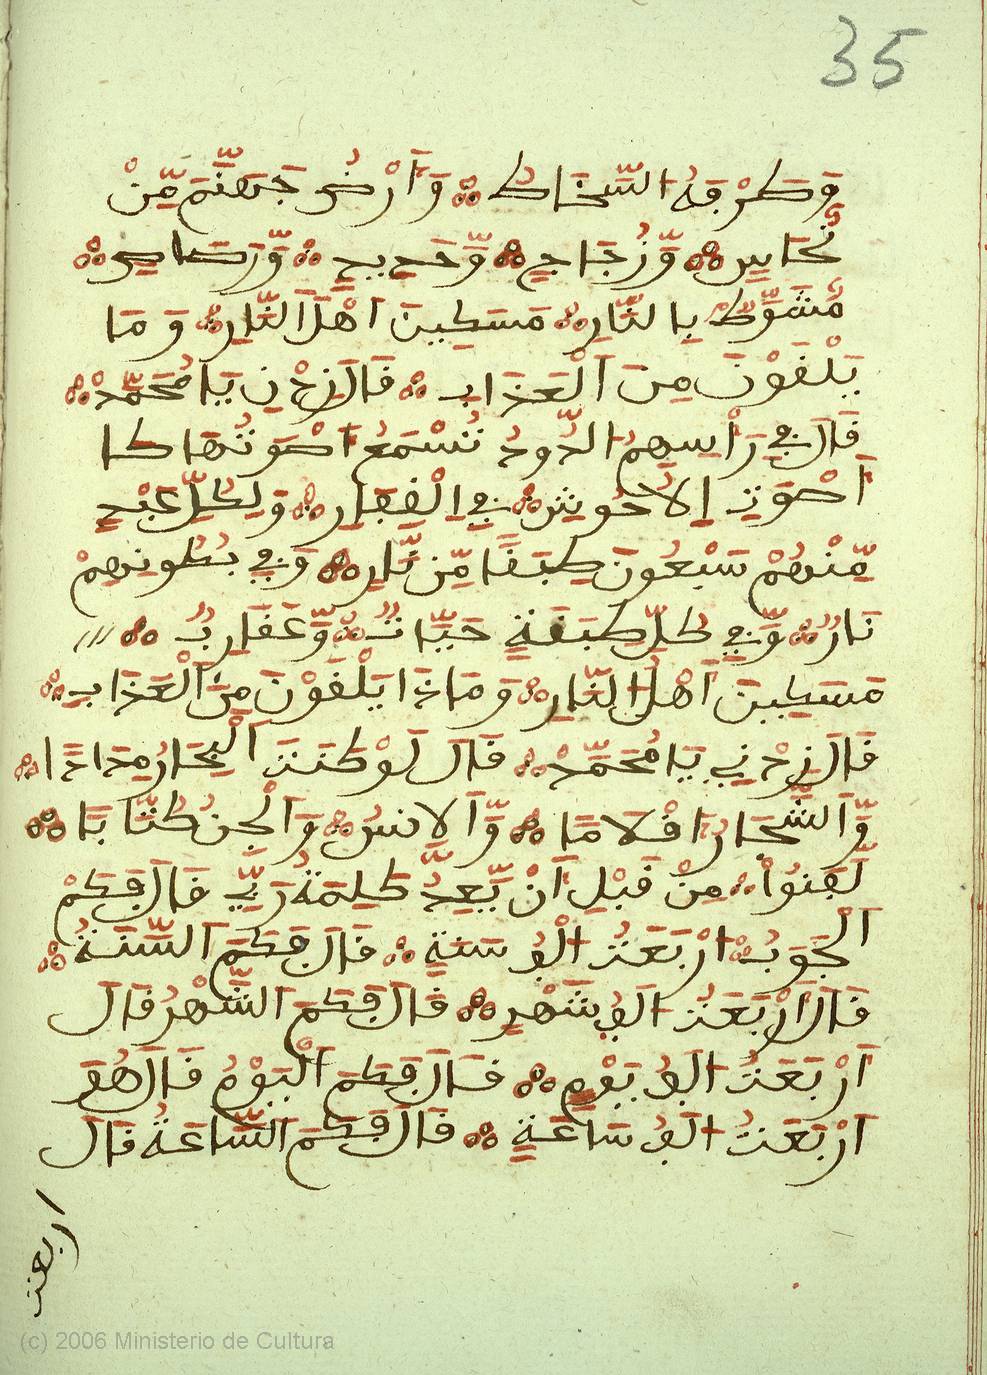 35
وَطَرْفِهُ السَّخَاطُ ۞ وَأَرْضُ جَهَنَّمَ مِّنْ
نُّحَاسٍ ۞ وَّزُجَاجٍ ۞ وَّحَدِيدٍ ۞ وَّرَصَاصٍ ۞
مَسَكِينَ اَهْلَ النَّارِ ۞ وَمَا بِالنَّارِ ۞
يَلْقَوْنَ مِنَ الْعَذَابِ ۞ قَالَ زِدْنِ يَا مُحَمَّدْ ۞
قَالَ فِي رَأْسِهِمُ الدُّودُ تُسْمَعُ اَصْوَتُهَا كَا
اَصْوَتِ الاُحُوشِ ۞ فِي اِلْفِفَارِ ۞ وَلِكُلِّ عَبْدٍ
مِّنْهُمْ سَبْعُونَ طِبَقًا مِّن نَّارٍ ۞ وَفِي بُطُونِهِمْ
نَارٌ ۞ وَّفِي كُلِّ طِبَقَةٍ حَيَّاتٌ ۞ وَّعَقَارِبٌ ۞
مَسَكِينَ اَهْلُ النَّارِ ۞ وَمَاذَا يَلْقَوْنَ مِنَ الْعَذَابِ ۞
قَالَ زِدْنِي يَا مُحَمَّدْ ۞ قَالَ لَوْ كَنَتِ الْبِحَارُ مِدَادًا ۞
وَّالشَّجَارُ اَقْلَامًا ۞ وَّالاِنسُ ۞ وَالْجِنُ كُتَّابًا ۞
لَّفَنُواْ ۞ مِنْ قَبْلِ اَنْ يَّبْعِدُ كَلِمَةُ رَبِّي قَالَ فَكَمْ
الْجَوَبُ ۞ اَرْبَعَتُ الْفُ سَنَةٍ ۞ قَالَ فَكَمَ السَّنَةُ ۞
قَالَ اَرْبَعَتُ الَفُ شَهْرٍ ۞ قَالَ فَكَمَ الشَّهْرُ قَالَ
اَرْبَعَتُ الَفُ يَوْمٍ ۞ قَالَ فَكَمَ الْيَوْمُ قَالَ هُوَ
اَرْبَعَتُ الَفُ سَاعَةٍ ۞ قَالَ فَكَمَ السَّاعَةُ قَالَ
اربعت
(c) 2006 Ministerio de Cultura